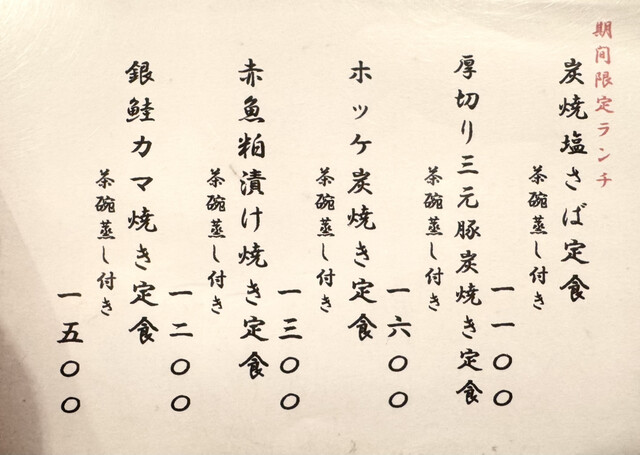 期間限定ランチ
炭焼塩さば定食
茶碗蒸し付き
一一〇〇
厚切り三元豚炭焼き定食
茶碗蒸し付き
一六〇〇
ホッケ炭焼き定食
茶碗蒸し付き
一三〇〇
赤魚粕漬け焼き定食
茶碗蒸し付き
一二〇〇
銀鮭カマ焼き定食
茶碗蒸し付き
一五〇〇